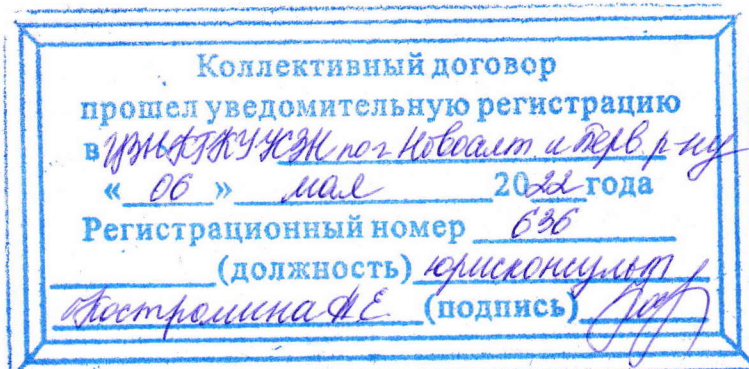 Коллективный договор
прошел уведомительную регистрацию
в ЦЗН КГКУ УСЗН по г. Новоалт. и Перв. р-ну
« 06 » мая 2022 года
Регистрационный номер 636
(должность) юрисконсульт
Костромина А Е (подпись)